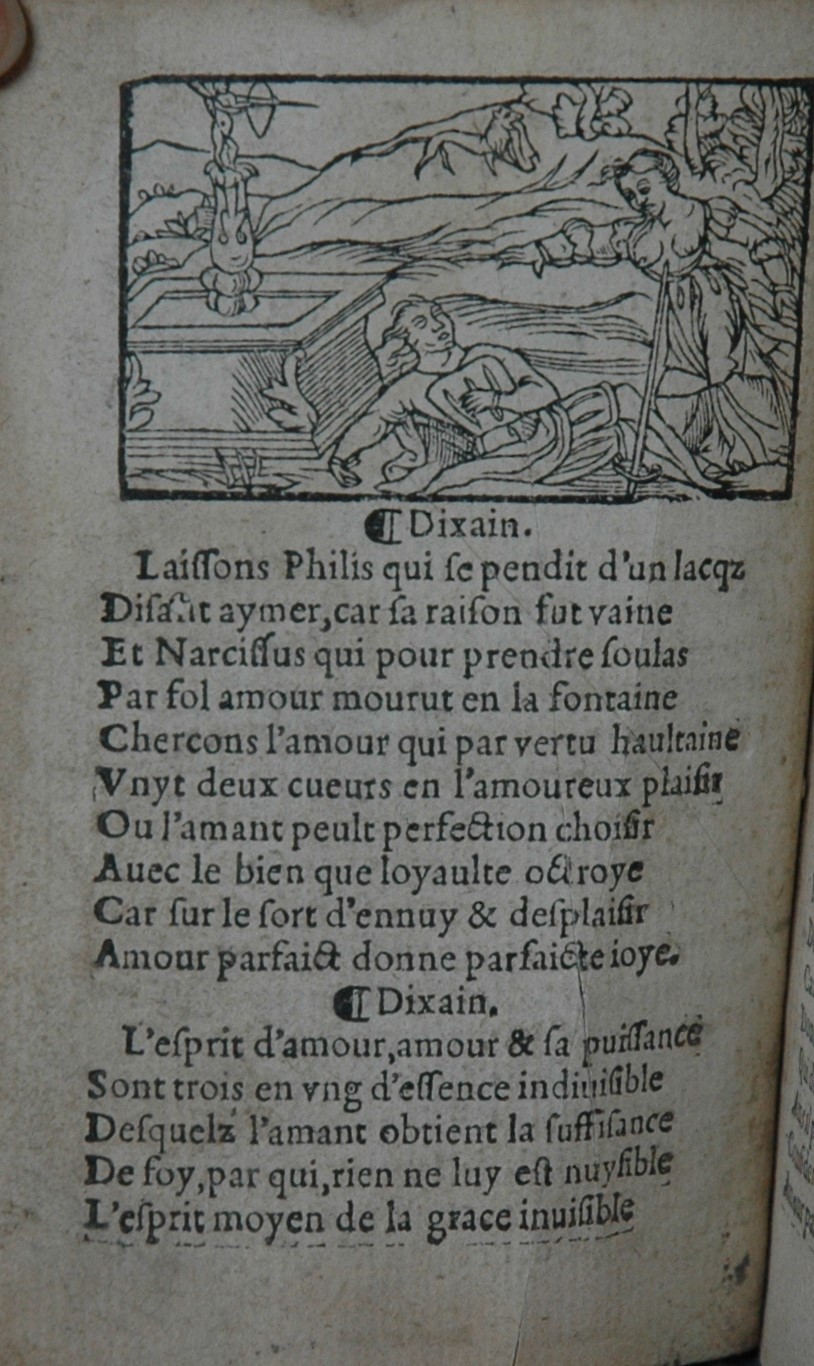 ¶ Dixain.
Laiſſons Philis qui ſe pendit d'un lacqz
aymer, car ſa raiſon fut vaine
Et Narciſſus qui pour prendre ſoulas
Par fol amour mourut en la fontaine
Chercons l'amour qui par vertu haultaine
Vnyt deux cueurs en l'amoureux plaiſir
Ou l'amant peult perfection choiſir
Auec le bien que loyaulte octroye
Car ſur le ſort d'ennuy & deſplaiſir
Amour parfaict donne parfaicte ioye.
¶ Dixain.
L'eſprit d'amour, amour & ſa puiſſance
Sont trois en vng d'eſſence indiuiſible
Deſquelz l'amant obtient la ſuffiſance
De foy, par qui, rien ne luy eſt nuyſible
L'eſprit moyen de la grace inuiſible